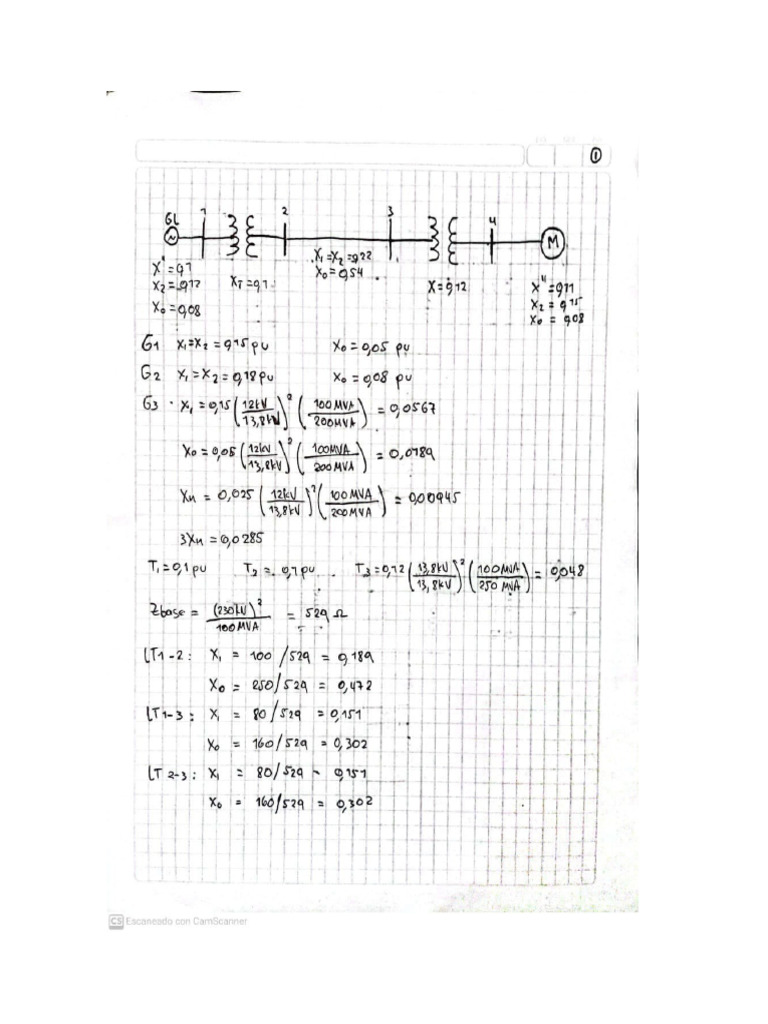 1
G1 1 2 3 4
~ M
X1=X2=0,22
X0=0,54
X''=0,1
X2=0,12
X0=0,08
XT=0,1
X=0,12
X''=0,11
X2=0,15
X0=0,08
G1 X1=X2=0,15 pu X0=0,05 pu
G2 X1=X2=0,18 pu X0=0,08 pu
G3 · X1=0,15 (12kV/13,8kV)² (100MVA/200MVA) = 0,0567
X0=0,05 (12kV/13,8kV)² (100MVA/200MVA) = 0,0189
Xn = 0,025 (12kV/13,8kV)² (100MVA/200MVA) = 0,00945
3Xn = 0,0285
T1=0,1 pu T2 = 0,1 pu T3=0,12 (13,8kV/13,8kV)² (100MVA/250MVA) = 0,048
Zbase = (230kV)²/100MVA = 529 Ω
LT1-2: X1 = 100/529 = 0,189
X0 = 250/529 = 0,472
LT1-3: X1 = 80/529 = 0,151
X0 = 160/529 = 0,302
LT2-3: X1 = 80/529 - 0,151
X0 = 160/529 = 0,302
CS Escaneado con CamScanner